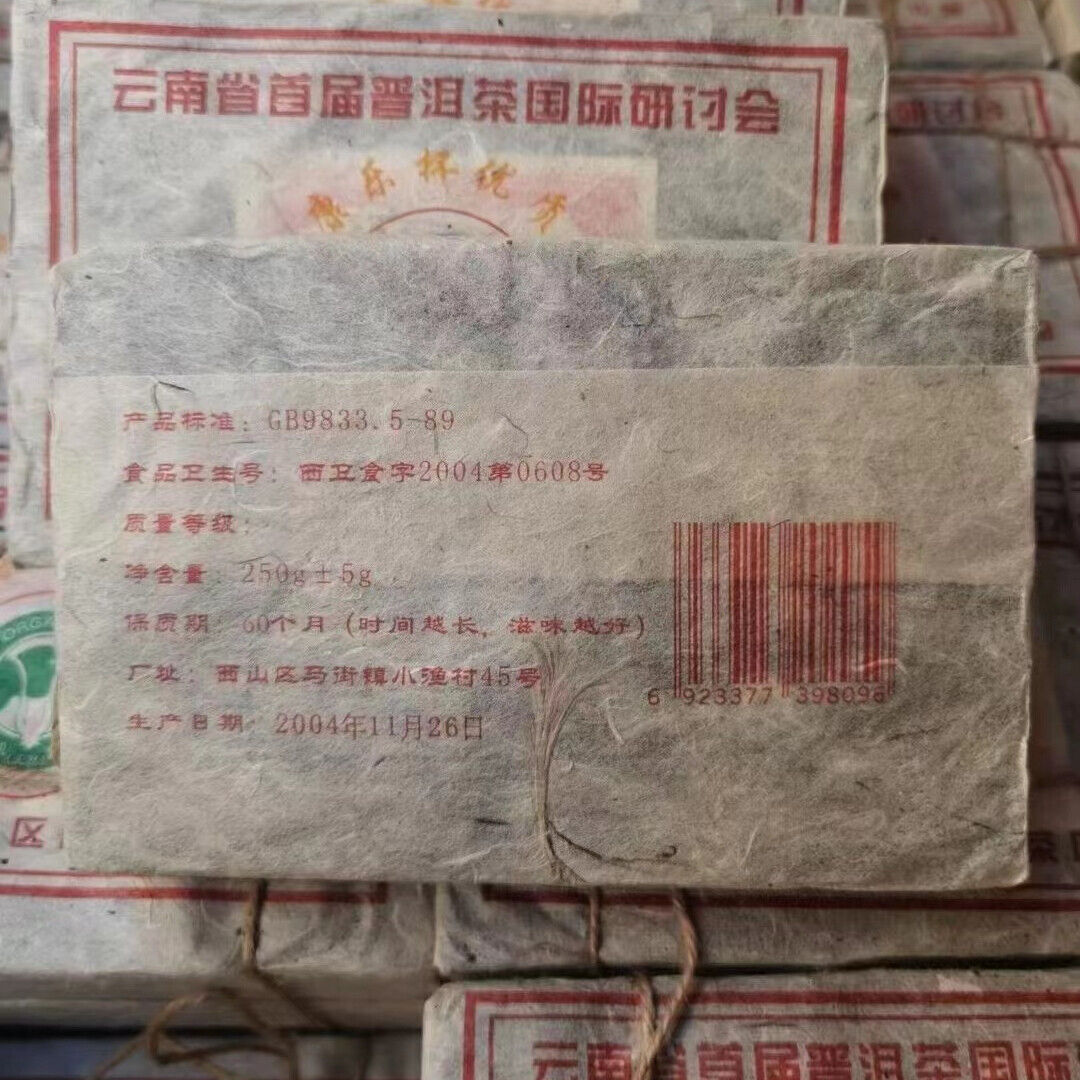 云南省首届普洱茶国际研讨会
产品标准：GB9833.5-89
食品卫生号：西卫食字2004第0608号
质量等级：
净含量：250g±5g
保质期：60个月（时间越长，滋味越好）
厂址：西山区马街镇小渔村45号
生产日期：2004年11月26日
6 923377 398096
ORGA
云南省首届普洱茶国际研